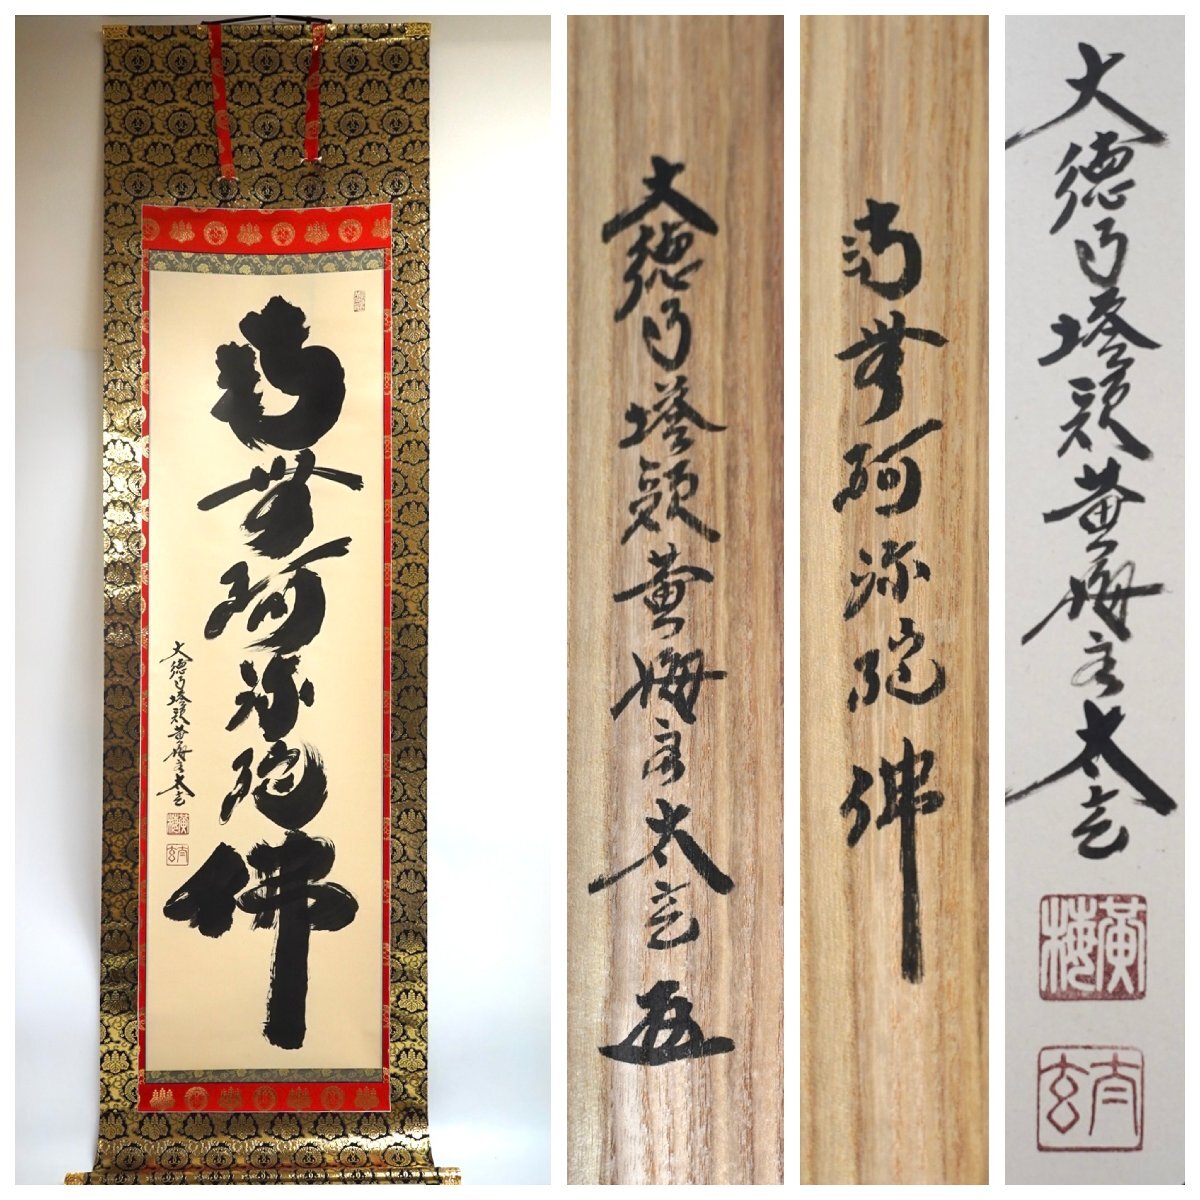 南無阿弥陀佛
大徳寺塔頭黄梅主太玄
黄梅
太玄
大徳寺塔頭黄梅主太玄
南無阿弥陀佛
大徳寺塔頭黄梅主太玄
黄梅
太玄